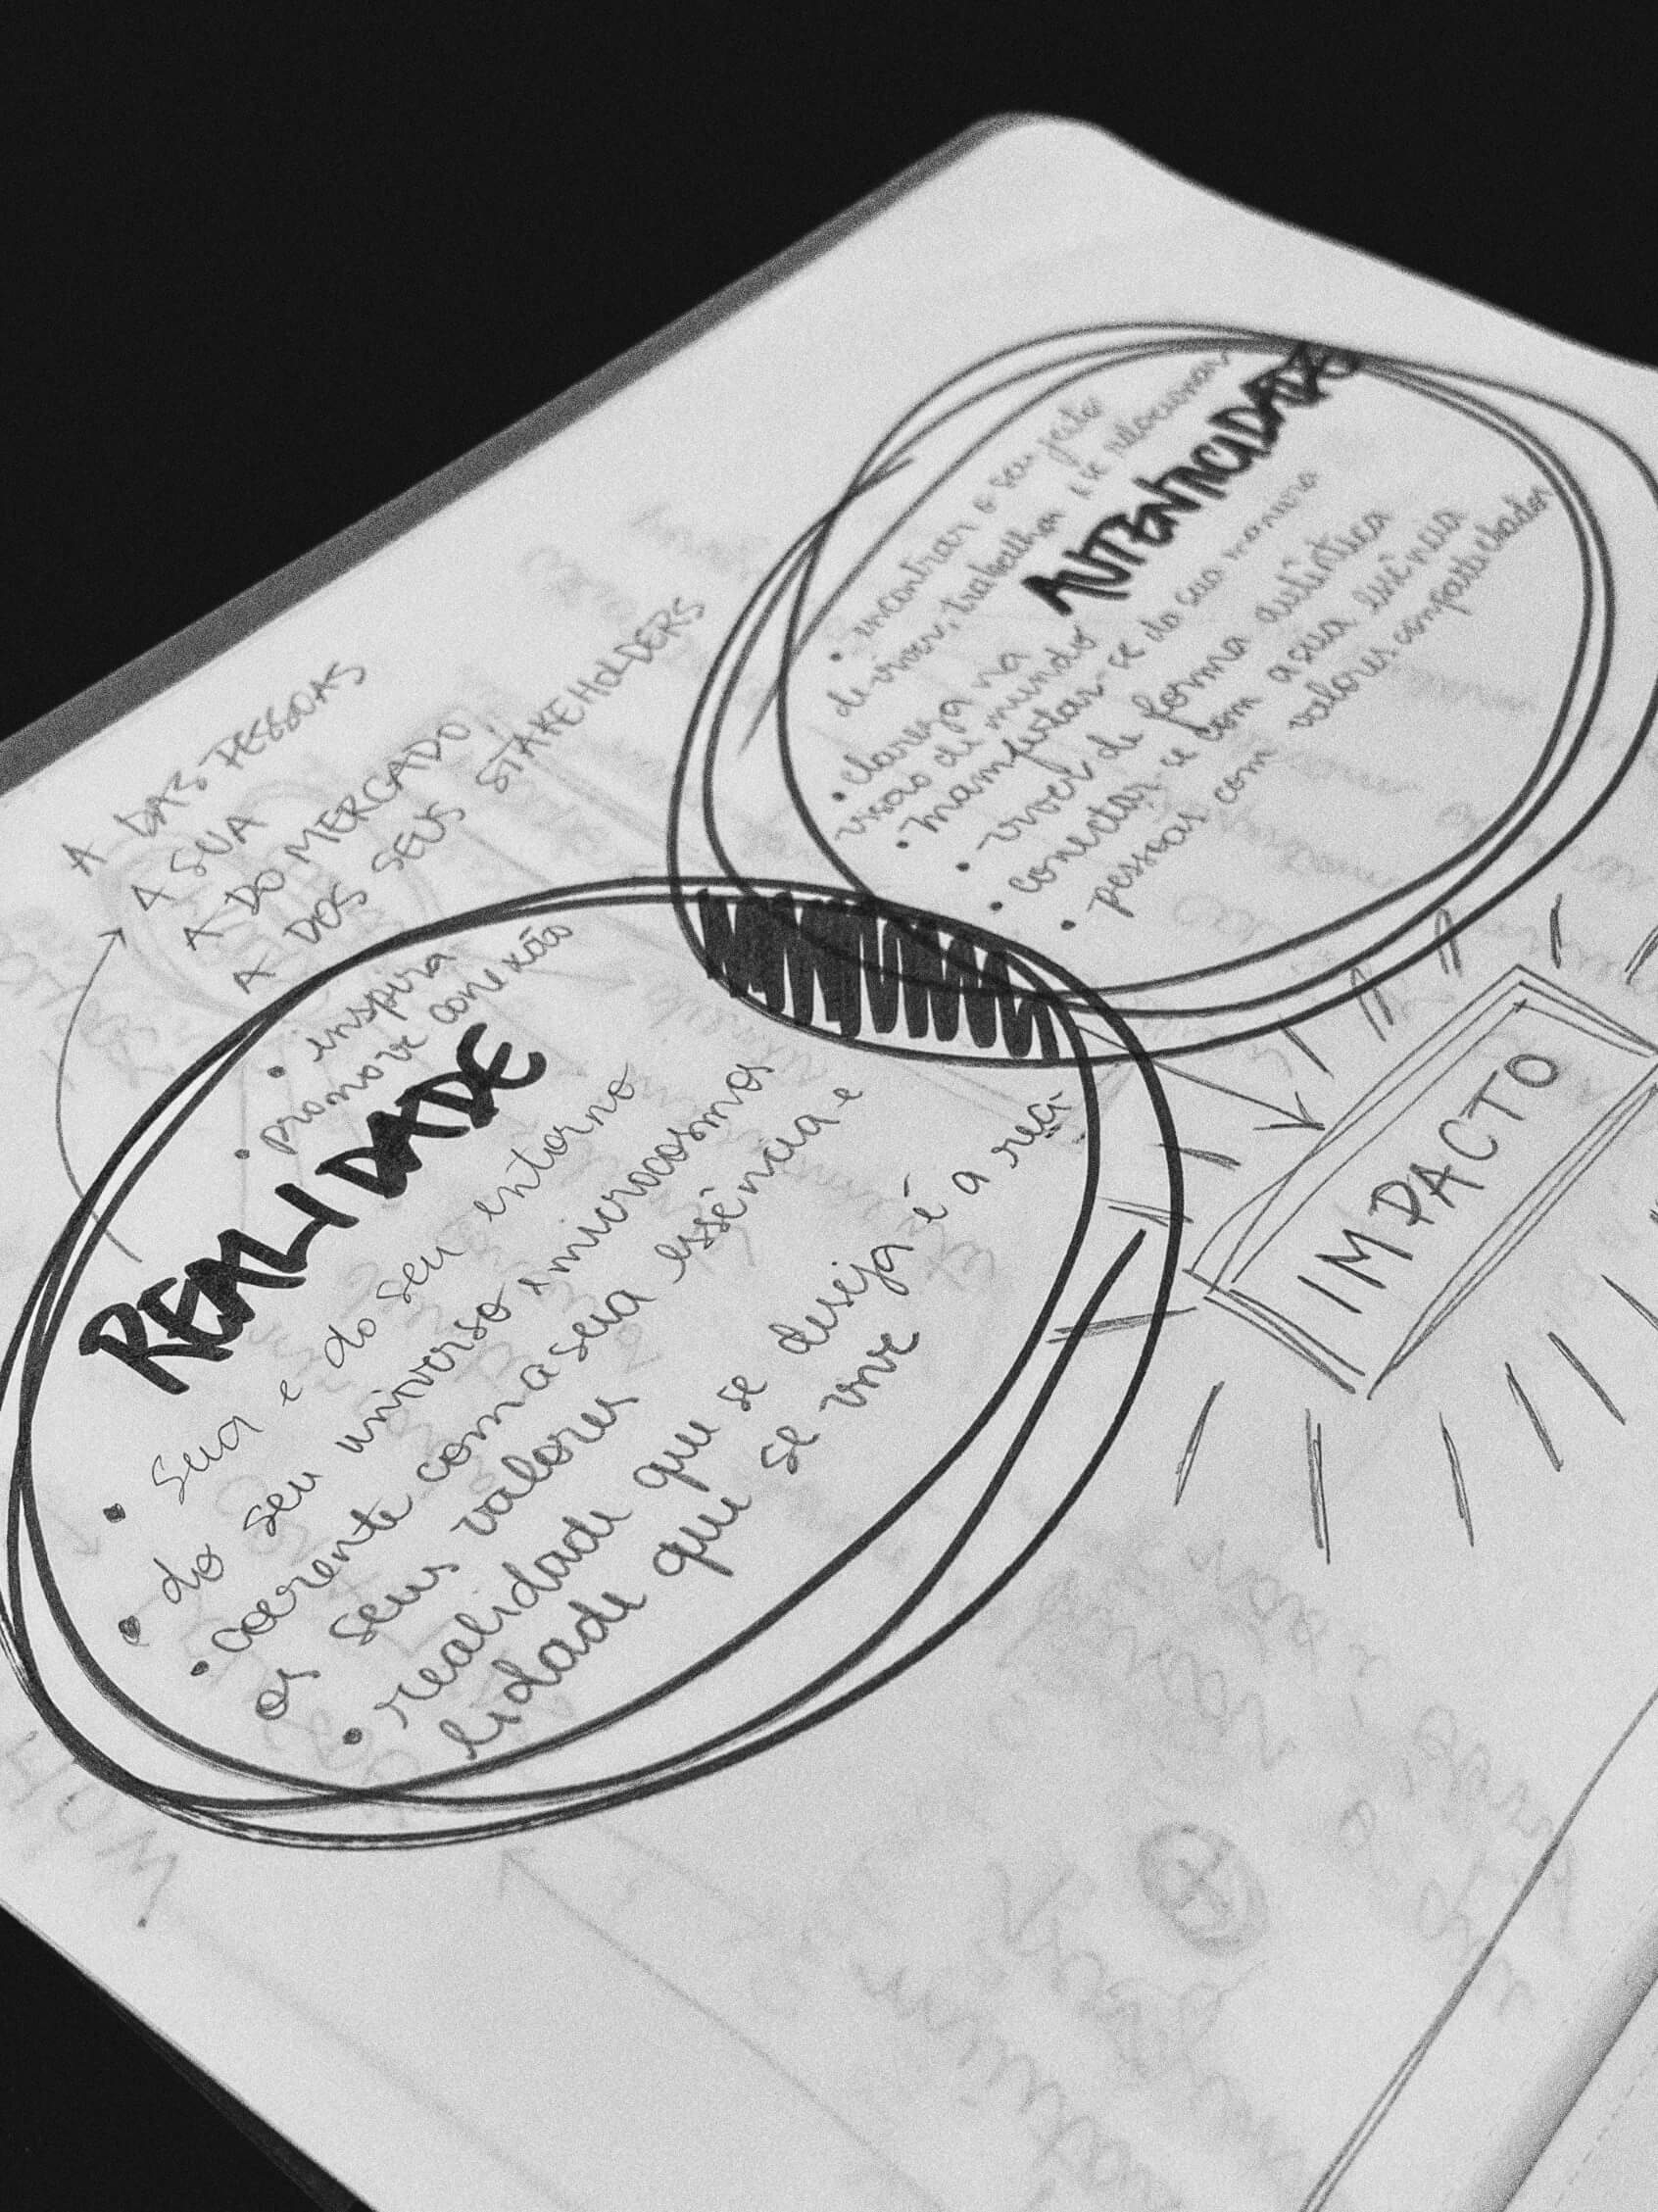 A DAS PESSOAS
A SUA
A DO MERCADO
A DOS SEUS STAKEHOLDERS
• encontrar o seu jeito
de viver, trabalhar e se relacionar
AUTENTICIDADE
• clareza na
visão de mundo
• manifestar-se da sua maneira
• viver de forma autêntica
• conectar-se com a sua essência
• pessoas com valores compartilhados
• inspira
• promove conexão
REALIDADE
• sua e do seu entorno
• do seu universo e microcosmos
• coerente com a sua essência e
os seus valores
• realidade que se deseja é a rea-
lidade que se vive
IMPACTO